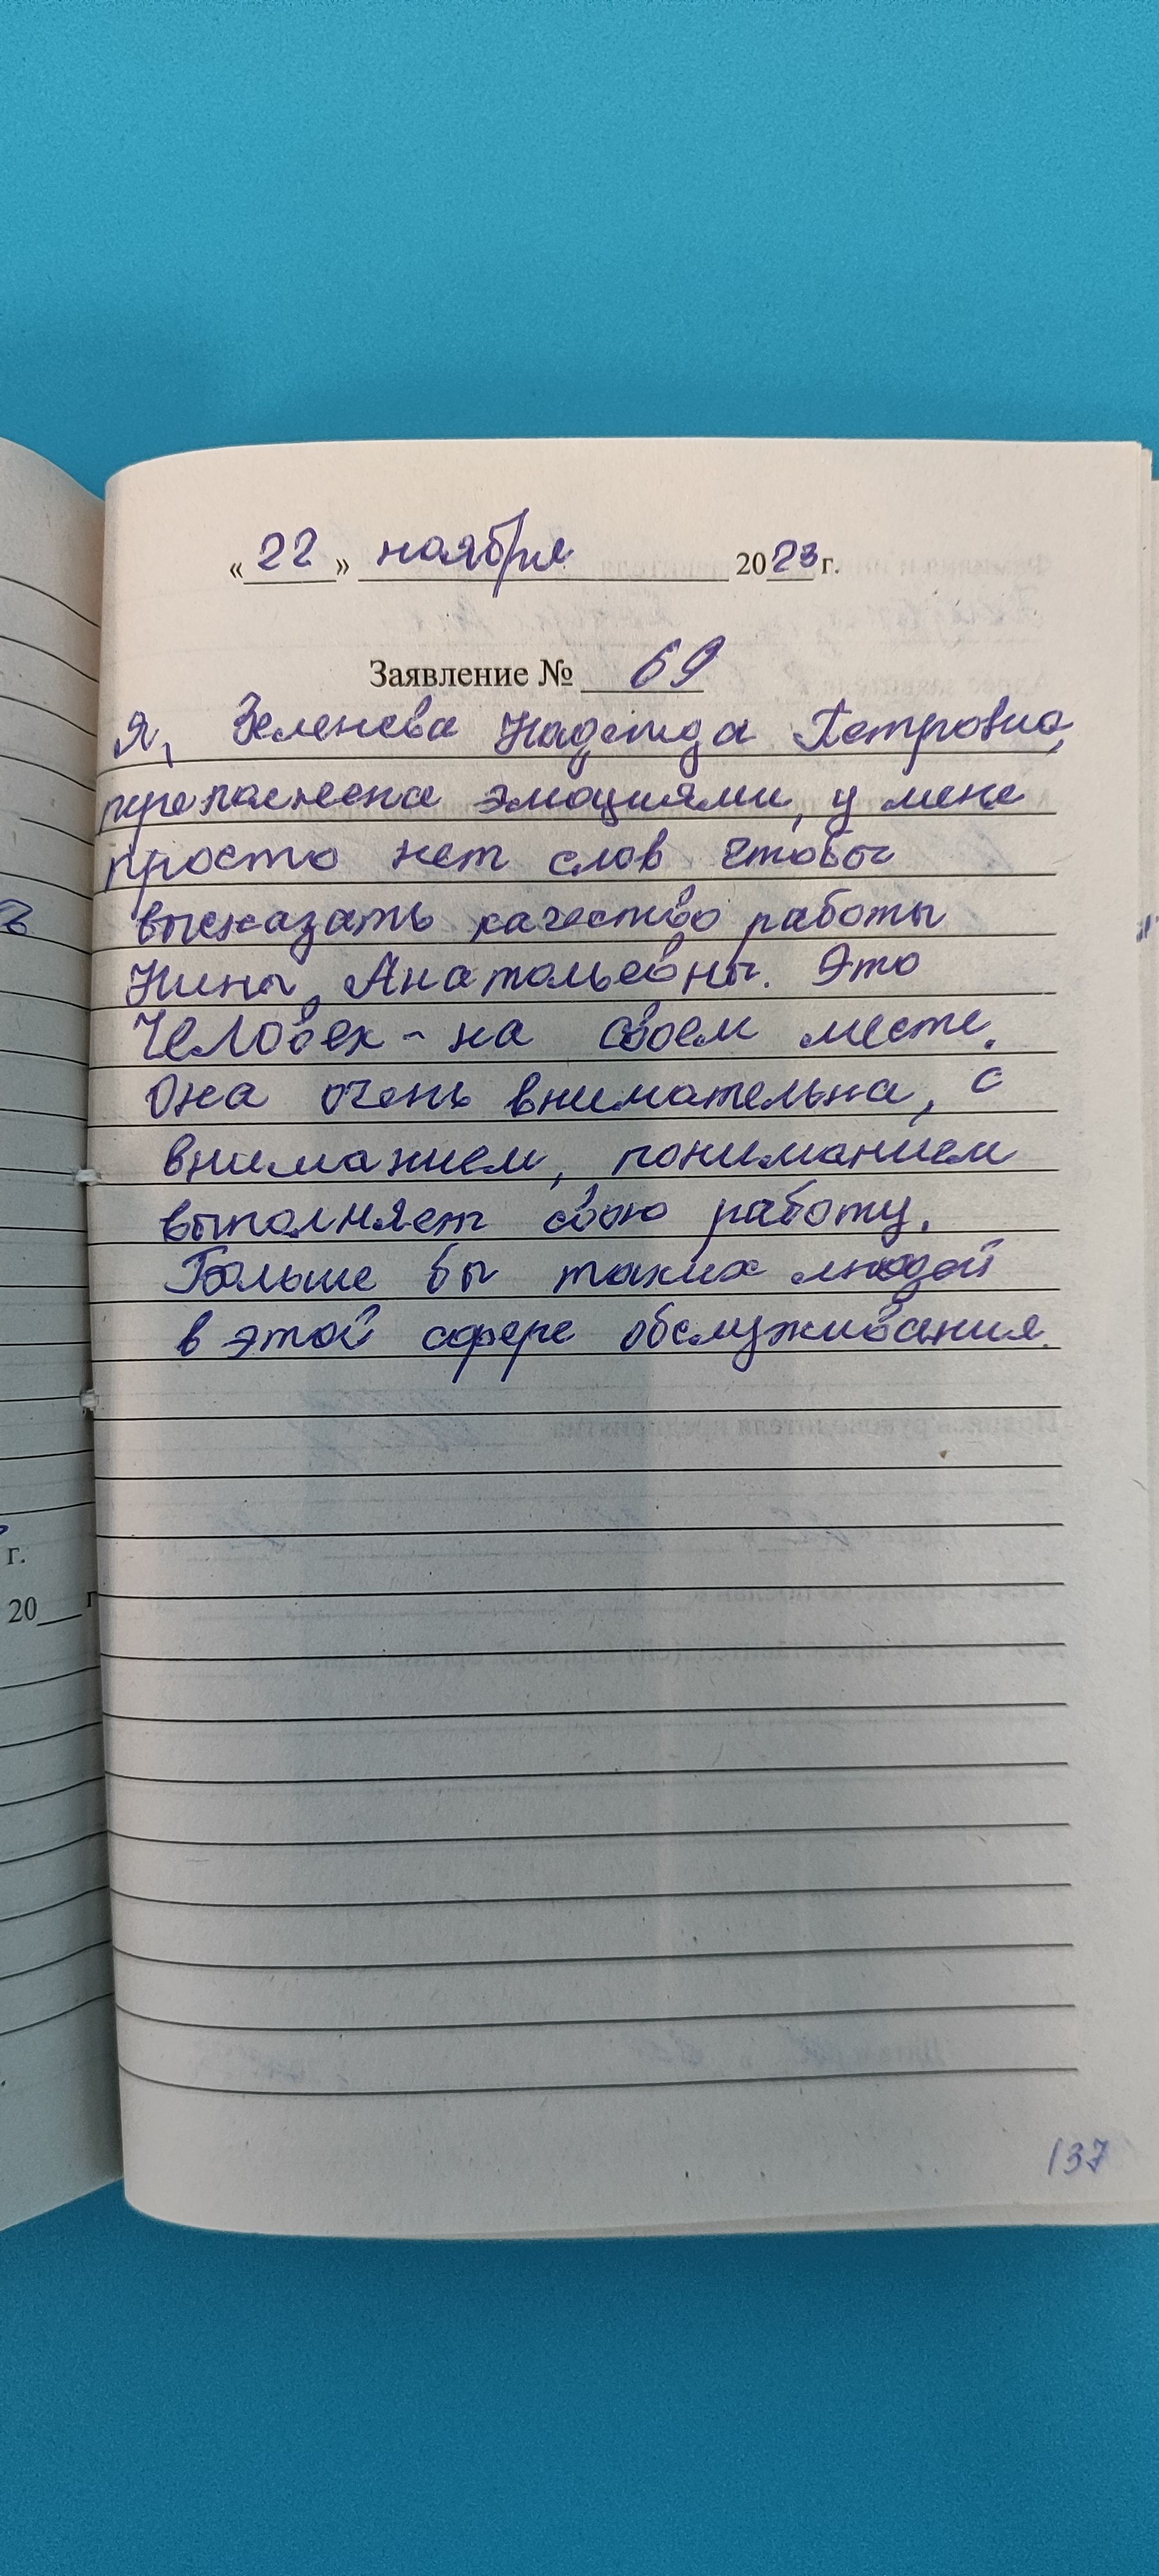 «22» ноября 2023 г.
Заявление № 69
Я, Зеленева Надежда Петровна,
переполнена эмоциями, у меня
просто нет слов чтобы
высказать качество работы
Нины Анатольевны. Это
Человек - на своем месте.
Она очень внимательна, с
вниманием, пониманием
выполняет свою работу.
Больше бы таких людей
в этой сфере обслуживания.
г.
20 г
137